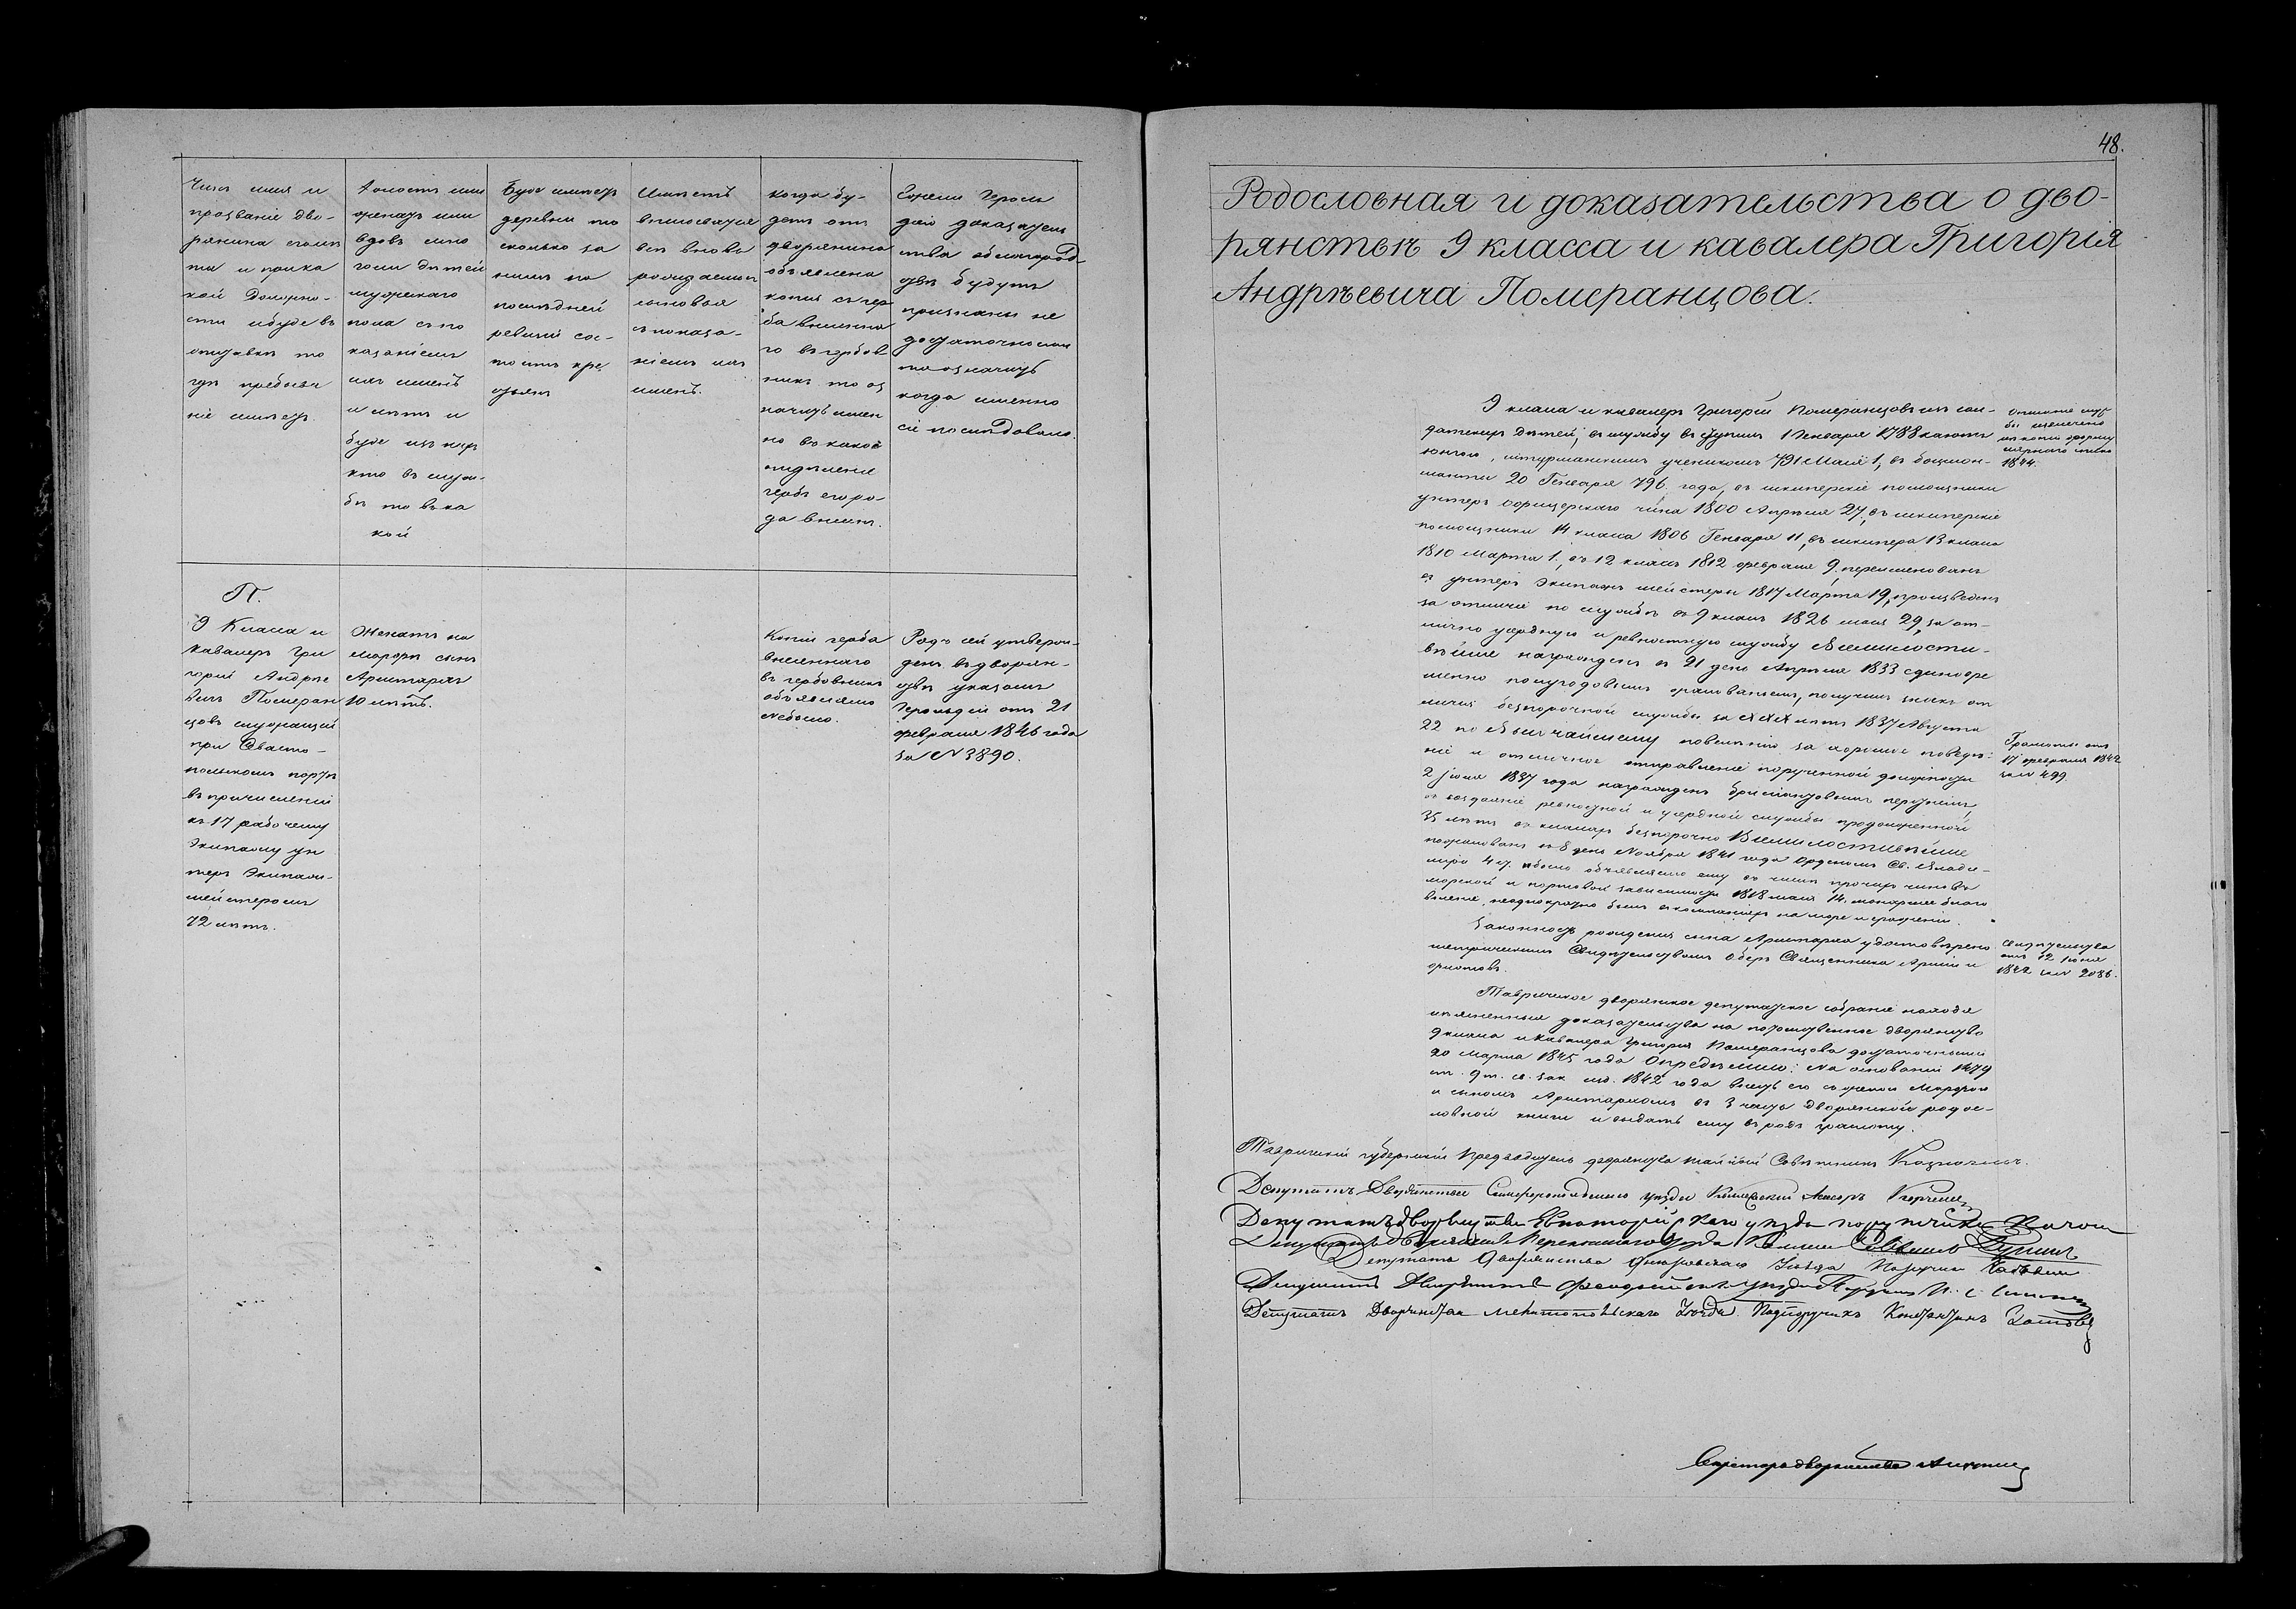 Чинъ имя и
прозваніе дво-
рянина
и пока
кой должно-
сти и буде въ
отставкѣ то
гдѣ пребыва
ніе имѣетъ.
Холостъ или
женатъ или
вдовъ и
дѣтей
мужескаго
пола съ по
казаніемъ
ихъ именъ
и лѣтъ и
буде изъ нихъ
кто въ служ-
бѣ то въ ка
кой
Буде имѣетъ
деревни то
сколько за
нимъ по
послѣдней
ревизіи сос-
тоитъ кре
стьянъ
вновь
рождаемые
сыновья
съ показа-
ніемъ ихъ
именъ.
Когда бу-
детъ отъ
дворянина
объявлена
копія съ гер
ба внесенна
го въ гербов
никъ то оз
начить имен
но въ какое
отдѣленіе
гербъ его ро-
да внесенъ.
Герольдіи доказатель
ства о благород
ствѣ будутъ
признаны не
достаточными
то означить
когда именно
сіе послѣдовало.
П.
9 Класса и
Кавалеръ Гри
горій Андрѣе
вичъ Померан
цовъ служащій
при Севасто-
польскомъ портѣ
въ причисленіи
къ 17 рабочему
Экипажу ун
теръ Экипаж-
мейстеромъ
72 лѣтъ.
Женатъ на
Марфѣ сынъ
Аристархъ
10 лѣтъ.
Копіи герба
внесеннаго
въ гербовникъ
объявляемо
не было.
Родъ сей утверж-
денъ въ дворян-
ствѣ указомъ
Герольдіи отъ 21
февраля 1846 года
за N 3890.
48.
Родословная и доказательства о дво-
рянствѣ 9 класса и кавалера Григорія
Андрѣевича Померанцова.
9 класса и кавалеръ Григорій Померанцовъ изъ сол-
датскихъ дѣтей, въ службу вступилъ 1 Генваря 1788
юнгою, штурманскимъ ученикомъ 791 Маія 1, въ боцман-
маты 20 Генваря 796 года, въ шкиперскіе помощники
унтеръ офицерскаго чина 1800 Апрѣля 27, въ шкиперскіе
помощники 14 класа 1806 Генваря 11, въ шкипера 13 класа
1810 Марта 1, въ 12 класъ 1812 февраля 9, переименованъ
въ унтеръ Экипажъ мейстеры 1817 Марта 19, произведенъ
за отличіе по службѣ въ 9 класъ 1826 маія 29, за от-
лично усердную и ревностную службу Всемилости-
вѣйше награжденъ въ 21 день Апрѣля 1833 единовре
менно полугодовымъ жалованьемъ, получилъ знакъ от
личія безпорочной службы за XXX лѣтъ 1837 Августа
22 по Высочайшему повелѣнію за хорошее поведе-
ніе и отличное отправленіе порученной должности
2 Іюня 1837 года награжденъ брилліантовымъ перстнемъ,
въ воздаяніе ревностной и усердной службы продолженной
35 лѣтъ въ класахъ безпорочно Всемилостивѣйше
пожалованъ въ 8 день Ноября 1841 года Орденомъ Св. Влади-
міра 4 ст. и было объявляемо ему въ числѣ прочихъ чиновъ
морской и портовой зависимости 1818 маія 14. монаршее благо
воленіе, неоднократно былъ въ компаніяхъ на море и сраженіи.
Законность рожденія сына Аристарха удостовѣрено
метрическимъ Свидѣтельствомъ Оберъ Священника Арміи и
флотовъ.
Таврическое дворянское депутатское собраніе находя
изъясненныя доказательства на потомственное дворянство
9 класа и Кавалера Григорія Померанцова достаточными
20 Марта 1845 года Опредѣлило: На основаніи 1479
ст. 9 т. св. зак. изд. 1842 года внесть его съ женою Марфою
и сыномъ Аристархомъ въ 3 часть дворянской родос-
ловной книги и выдать ему въ родъ грамоту.
1844.
Грамоты отъ
17 февраля 1842
за N 499
Свидѣтельство
отъ 12 Іюня
1842 за N 2086.
Таврическій губернскій Предводитель дворянства тайный Совѣтникъ Казначеевъ.
Депутатъ Дворянства Симферопольскаго уѣзда Коллежскій Асесоръ
Депутатъ дворянства Евпаторійскаго уѣзда поручикъ
Депутатъ дворянства Перекопскаго уѣзда
Депутатъ Дворянства Днѣпровскаго Уѣзда Поручикъ
Депутатъ Дворянства Феодосійскаго уѣзда
Депутатъ Дворянства Мелитопольскаго Уѣзда Подпоручикъ Константинъ
Секретарь дворянства